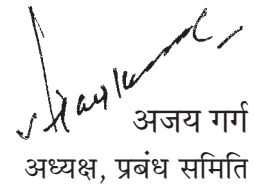 अजय गर्ग
अध्यक्ष, प्रबंध समिति